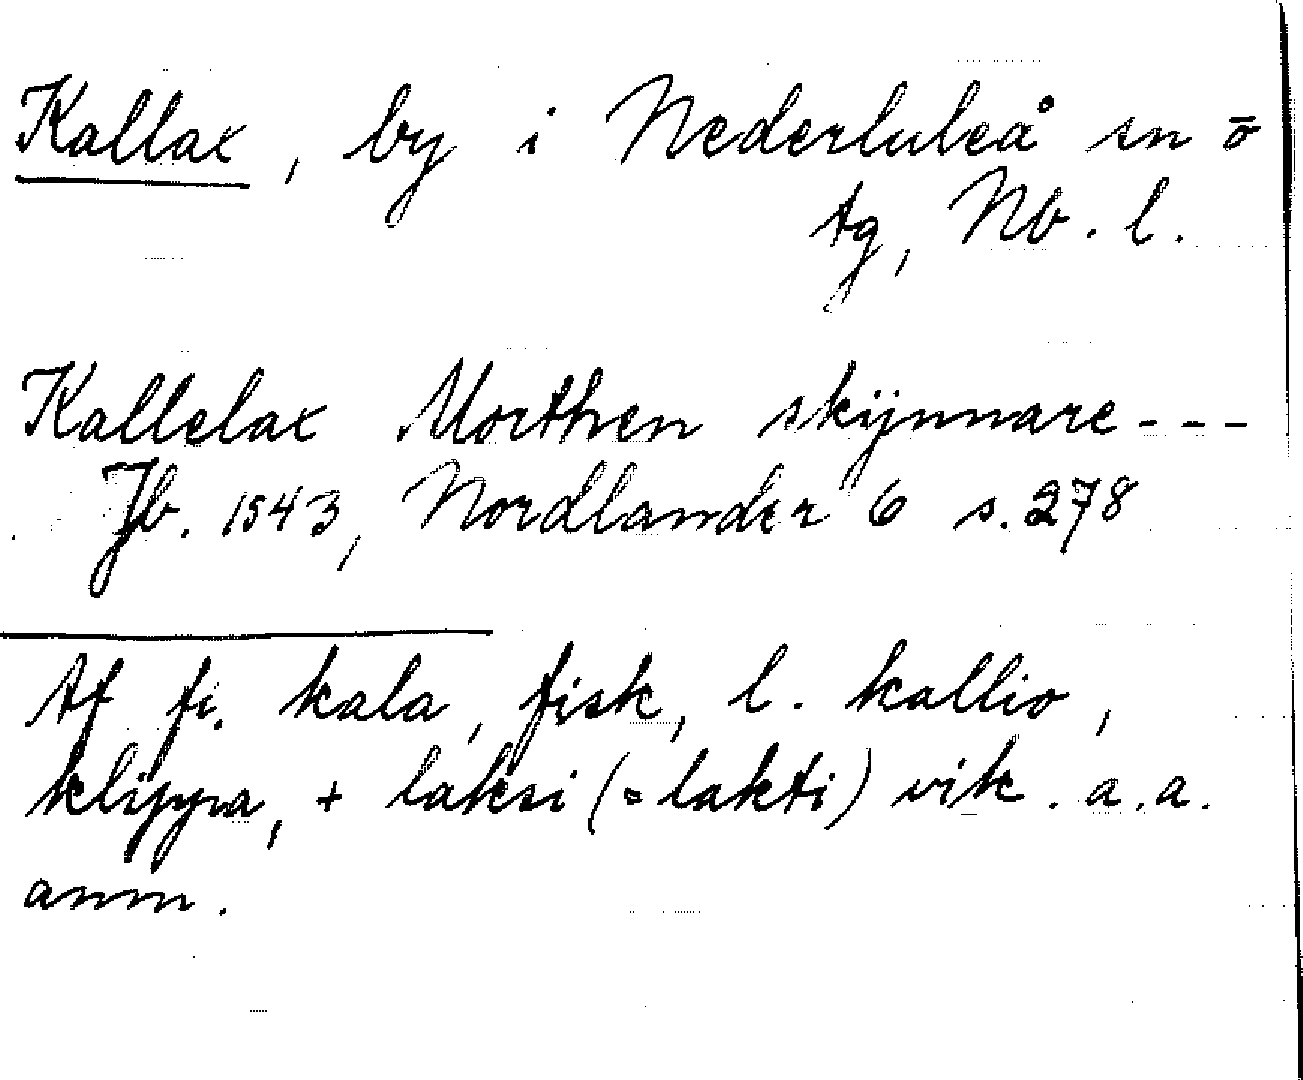 Kallax, by i Nederluleå sn ō
tg, Nb. l.
Kallelax Morthen skijnnare - - -
Jb. 1543, Nordlander 6 s. 278
Af fi. kala, fisk, l. kallio,
klippa, + laksi (= lakti) vik. a.a.
anm.